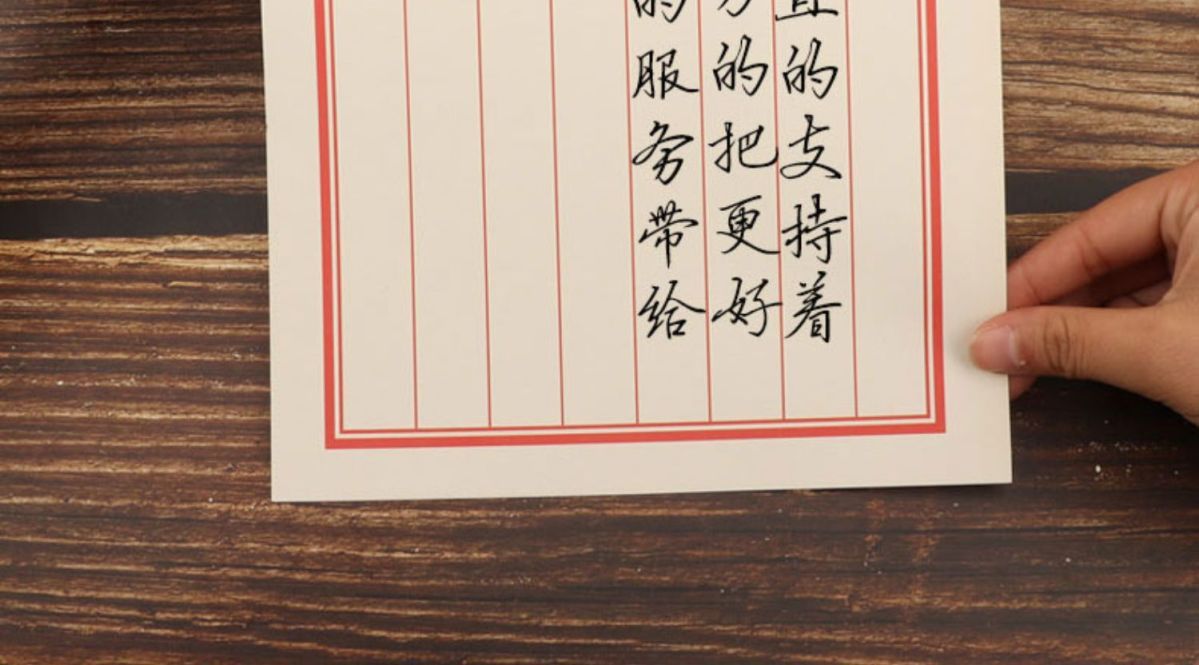 直的支持着
的把更好
的服务带给